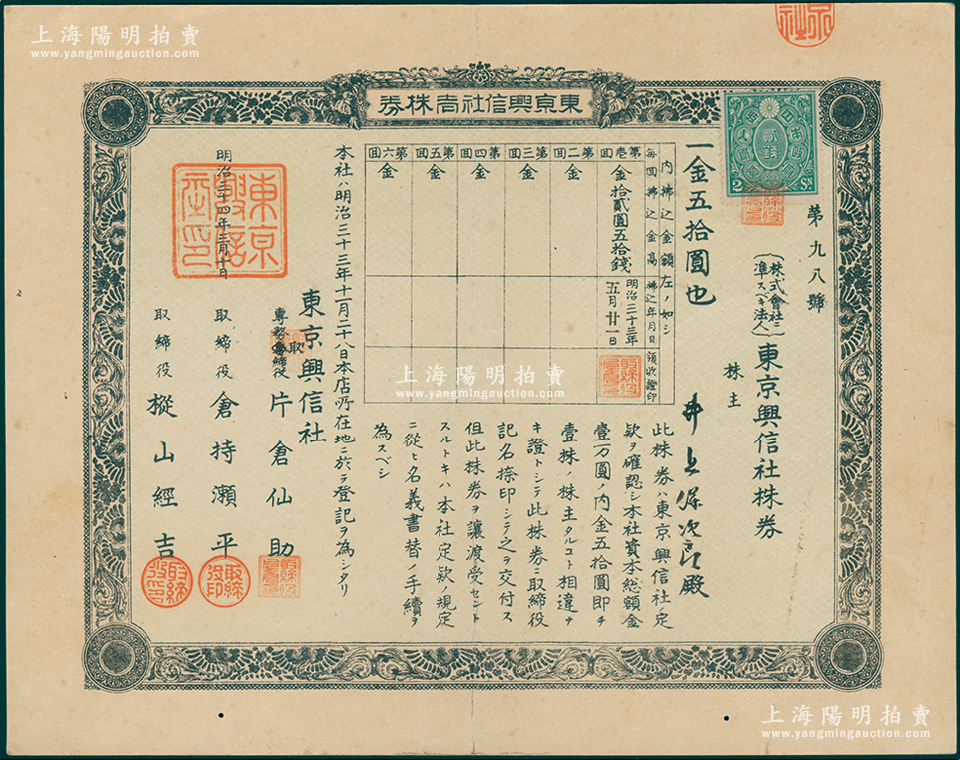 上海陽明拍賣
www.yangmingauction.com
東京興信社株券
第九八號
(株式會社ニ準スベキ法人)
東京興信社株券
株主
井上
殿
一金五拾圓也
貳錢
2 Sn
内拂込金額左ノ如シ
每回拂込金高
拂込年月日
領收證印
第壱回
金拾貳圓五拾錢
明治三十三年五月廿一日
第二回
金
第三回
金
第四回
金
第五回
金
第六回
金
此株券ハ東京興信社ノ定
欵ヲ確認シ本社資本総額金
壹万圓ノ内金五拾圓即チ
壹株ノ株主タルコト相違ナ
キ證トシテ此株券ニ取締役
記名捺印シテ之ヲ交付ス
但此株券ヲ讓渡受セント
スルトキハ本社定欵ノ規定
ニ從ヒ名義書替ノ手續ヲ
為スベシ
本社ハ明治三十三年十一月二十八日本店所在地ニ於テ登記ヲ為シタリ
明治三十四年三月十日
東京興信社之印
東京興信社
專務取締役 片倉仙助
取締役 倉持瀨平
取締役 樅山經吉
取締役印
上海陽明拍賣
www.yangmingauction.com
上海陽明拍賣
www.yangmingauction.com